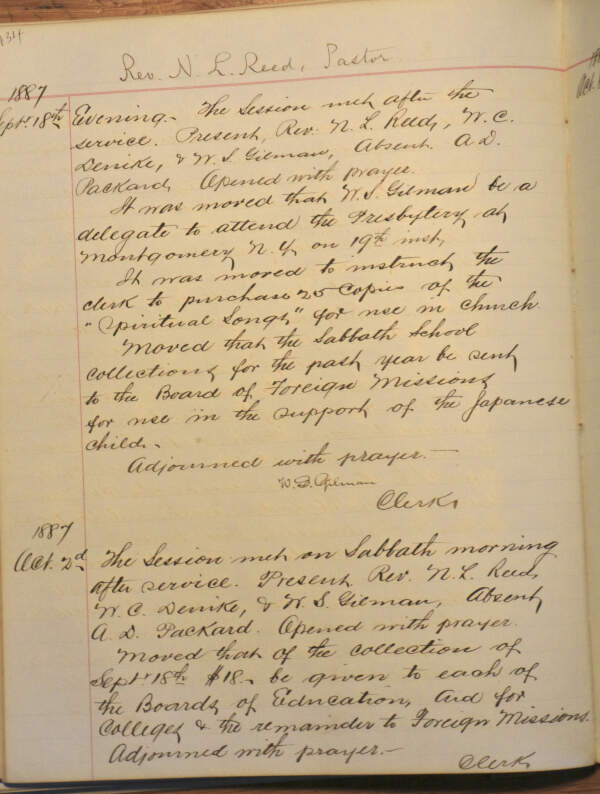 134
Rev. N. L. Reed, Pastor
1887
Sept. 18th Evening. The Session met after the
service. Present, Rev. N. L. Reed, W. C.
Denike, & W. S. Gilman, Absent A. D.
Packard, Opened with prayer.
It was moved that W. S. Gilman be a
delegate to attend the Presbytery at
Montgomery N. Y. on 19th inst,
It was moved to instruct the
clerk to purchase 25 Copies of the
"Spiritual Songs" for use in church.
Moved that the Sabbath School
collections for the past year be sent
to the Board of Foreign Missions
for use in the support of the Japanese
child.
Adjourned with prayer.—
W. S. Gilman
Clerk,
1887
Oct. 2d The Session met on Sabbath morning
after service. Present Rev. N. L. Reed,
W. C. Denike, & W. S. Gilman, Absent,
A. D. Packard. Opened with prayer.
Moved that of the collection of
Sept 18th $18- be given to each of
the Boards of Education, Aid for
Colleges & the remainder to Foreign Missions.
Adjourned with prayer.—
Clerk,